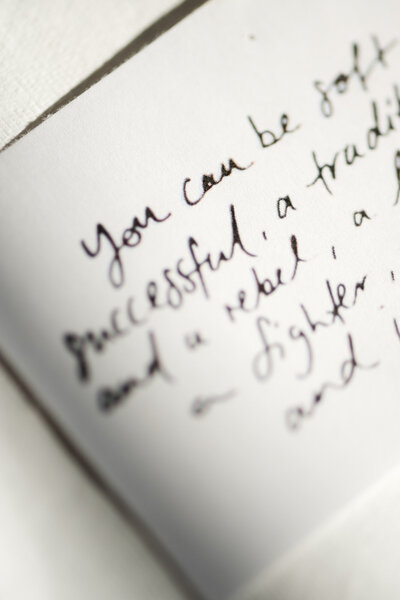 You can be soft
successful, a tradit
and a rebel, a
a fighter,
and